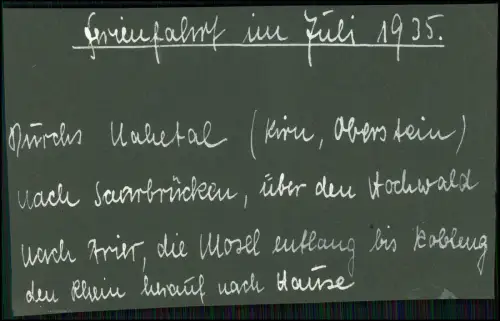 Ferienfahrt im Juli 1935.
Durchs Nahetal (Kirn, Oberstein)
nach Saarbrücken, über den Hochwald
nach Trier, die Mosel entlang bis Koblenz
den Rhein herauf nach Hause